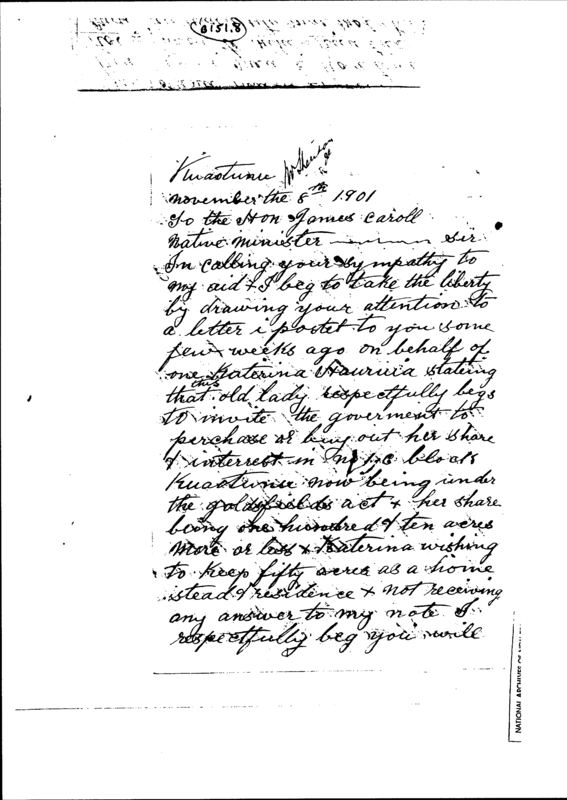 B151.8
Kuaotunu
november the 8th 1901
To the Hon James Caroll
Native Minister Sir
In calling your sympathy to
my aid & I beg to take the liberty
by drawing your attention to
a letter i postet to you some
few weeks ago on behalf of
one Katerina Hauruia stateing
that this old lady respectfully begs
to invite the goverment to
perchase or buy out her share
& interrest in no 1 c block
Kuaotunu now being under
the goldsfields act & her share
being one hundred & ten acres
more or less & Katerina wishing
to Keep fifty acres as a home
stead & residence & not receiving
any answer to my note I
respectfully beg you will
NATIONAL ARCHIVES OF